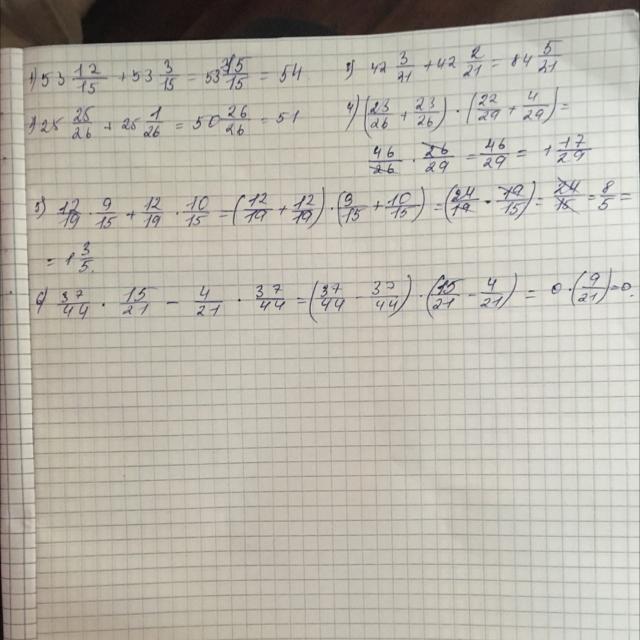 1) 53 12/15 + 53 3/15 = 53 15/15 = 54.
3) 42 3/21 + 42 2/21 = 84 5/21
2) 25 25/26 + 25 1/26 = 50 26/26 = 51
4) (23/26 + 23/26) · (22/29 + 4/29) =
46/26 · 26/29 = 46/29 = 1 17/29
5) 12/19 · 9/15 + 12/19 · 10/15 = (12/19 + 12/19) · (9/15 + 10/15) = (24/19 · 19/15) = 24/15 = 8/5 =
= 1 3/5.
6) 37/44 · 15/21 - 4/21 · 37/44 = (37/44 - 37/44) · (15/21 - 4/21) = 0 · (9/21) = 0.